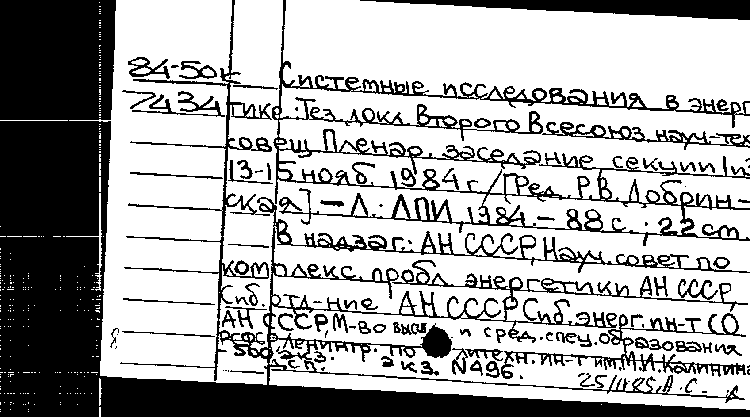 84-50к Системные исследования в энерг
7434 тике: Тез. докл. Второго Всесоюз. науч.-тех
совещ. Пленар. заседание, секции 1 из
13-15 нояб. 1984 г. / [Ред. Р.В. Добрин-
ская] – Л.: ЛПИ, 1984. – 88 с.; 22 cm
В надзаг.: АН СССР, Науч. совет по
комплекс. пробл. энергетики АН СССР,
Сиб. отд-ние АН СССР Сиб. энерг. ин-т СО
АН СССР, М-во высш и сред. спец. образования
РСФСР Ленингр. по литехн. ин-т им. М.И. Калинина
- 500 экз. экз. N496.
Дсп. 25/II 85, А.С.
8